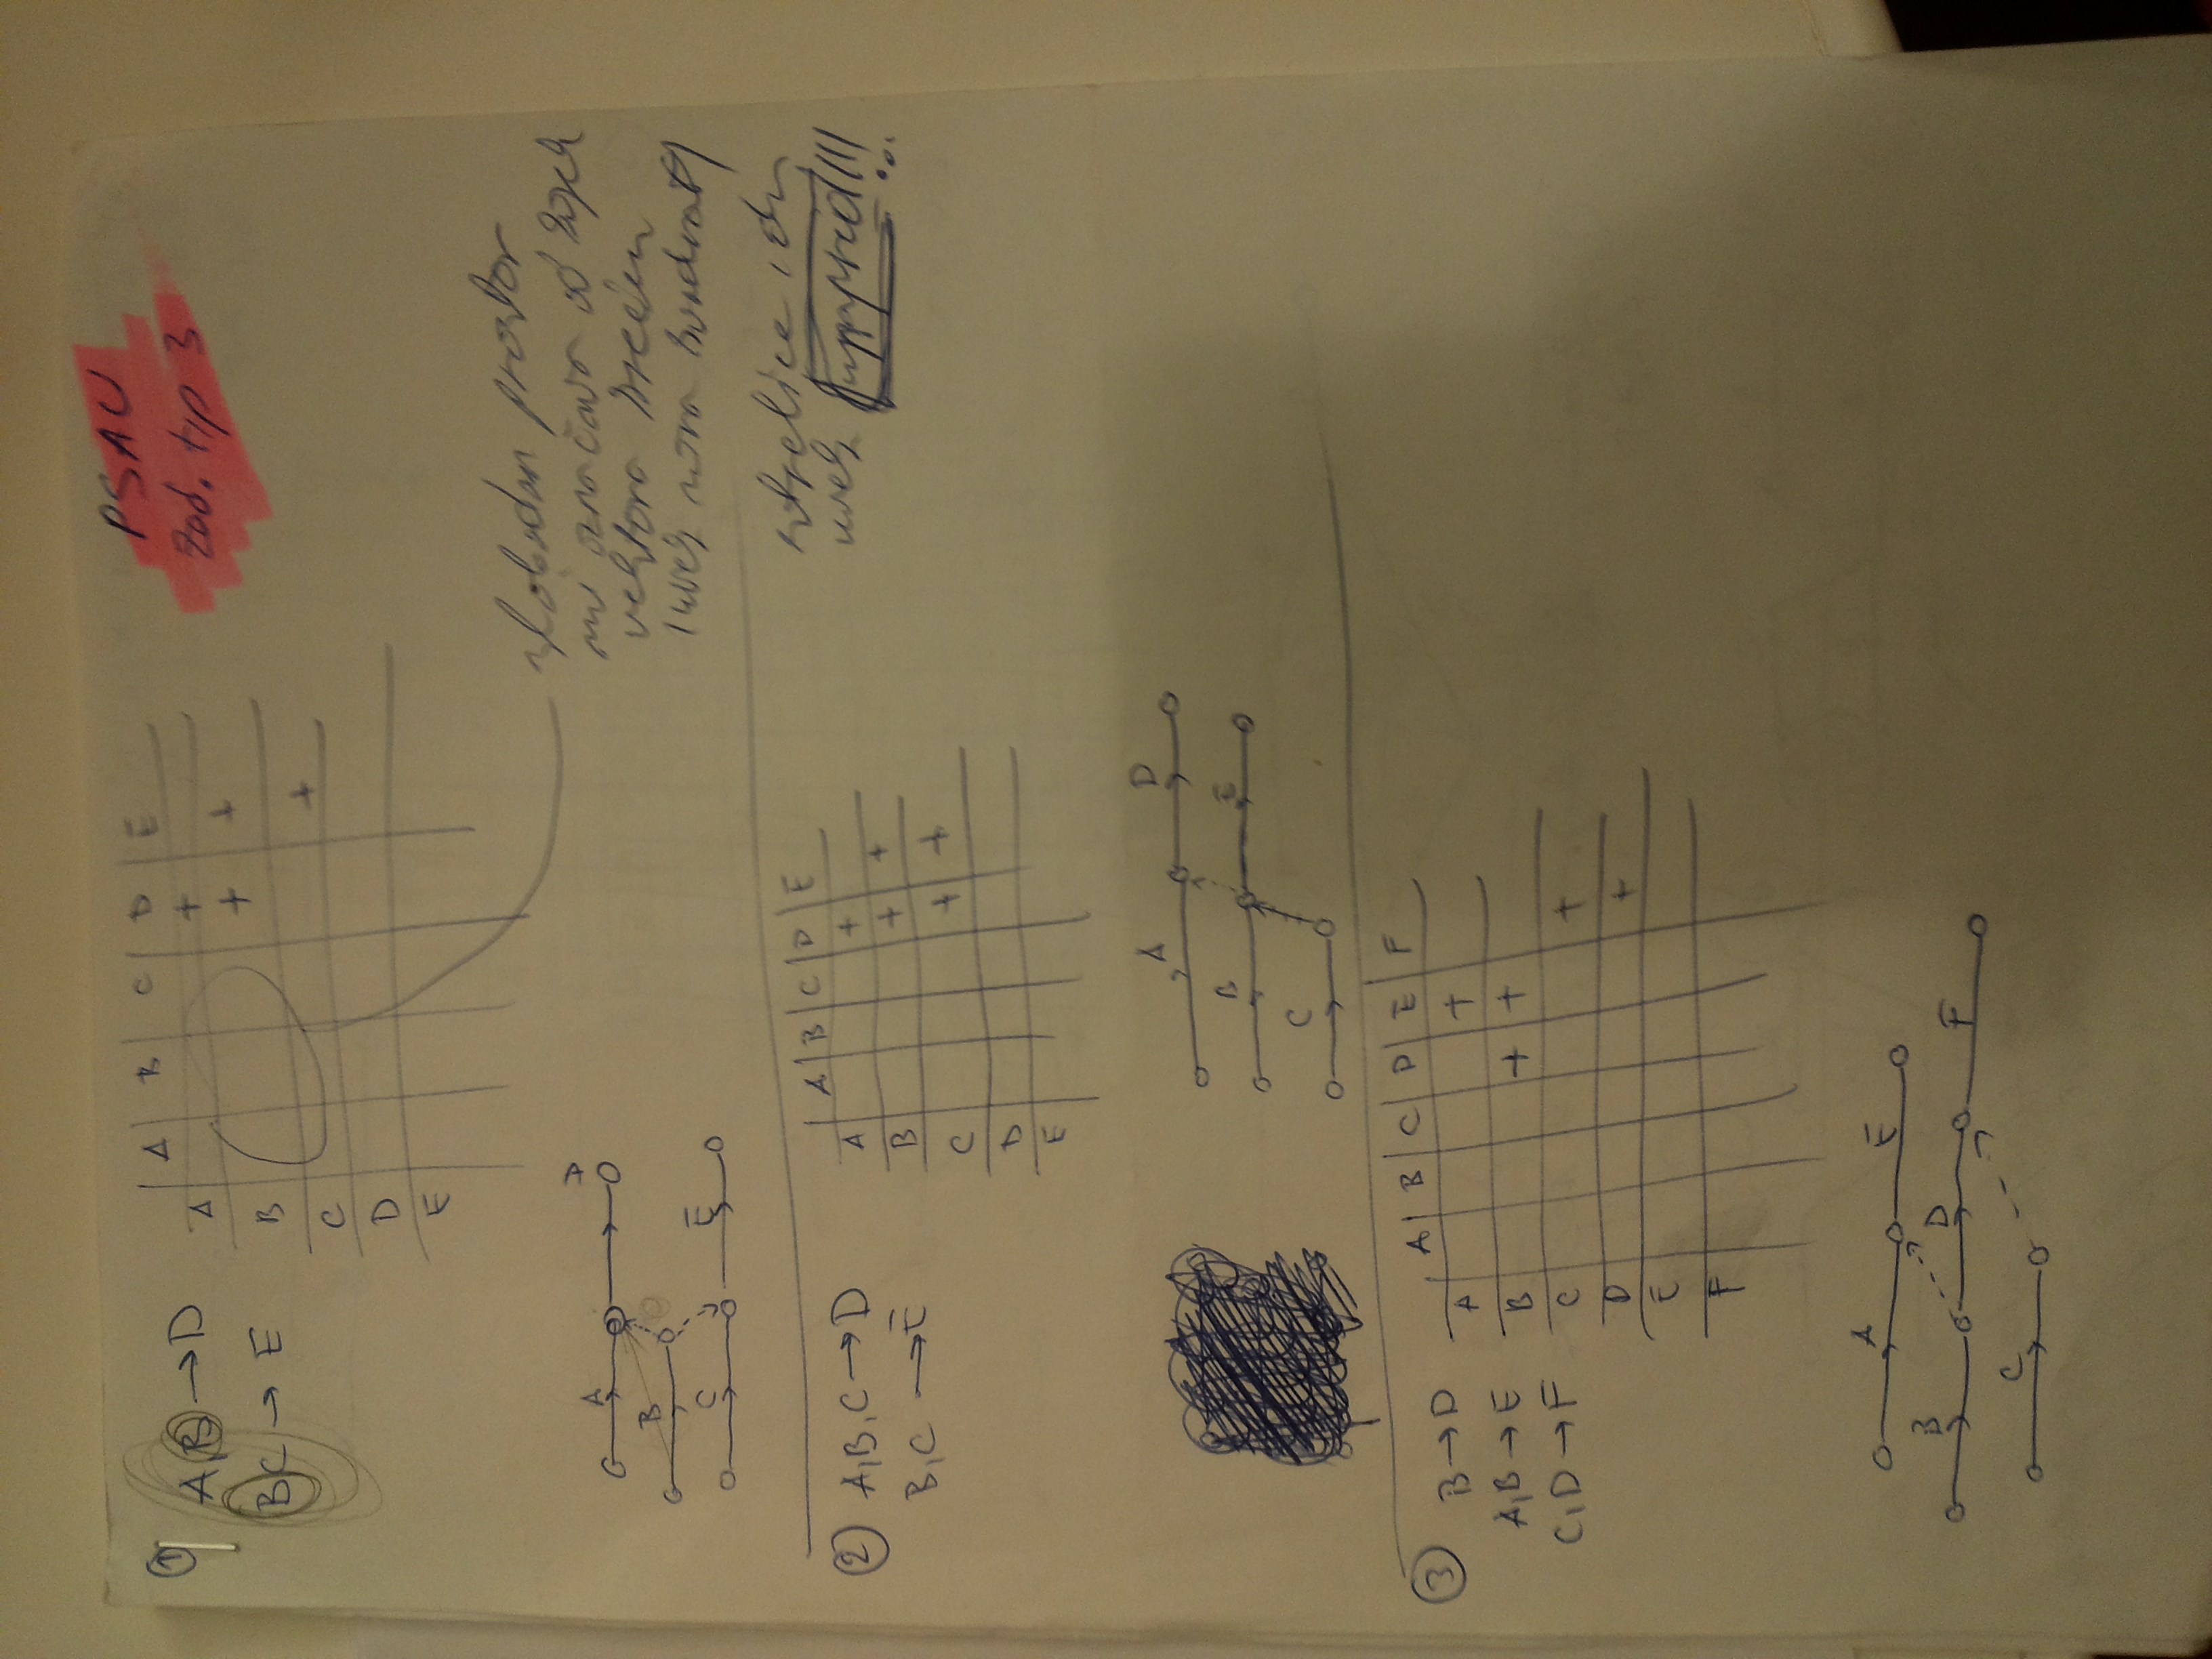 PSAU
Zad. tip 3
①
A,B → D
BC → E
A B C D E
A +
B + +
C +
D
E
slobodan prostor
mi označava od kojih
vektora krećem
(uvek mora kvadrat)
strelice idu
uvek unapred!!!
A D
B
C E
② A,B,C → D
B,C → E
A B C D E
A +
B + +
C + +
D
E
A D
B E
C
③ B → D
A,B → E
C,D → F
A B C D E F
A +
B + +
C +
D +
E
F
A E
B D F
C